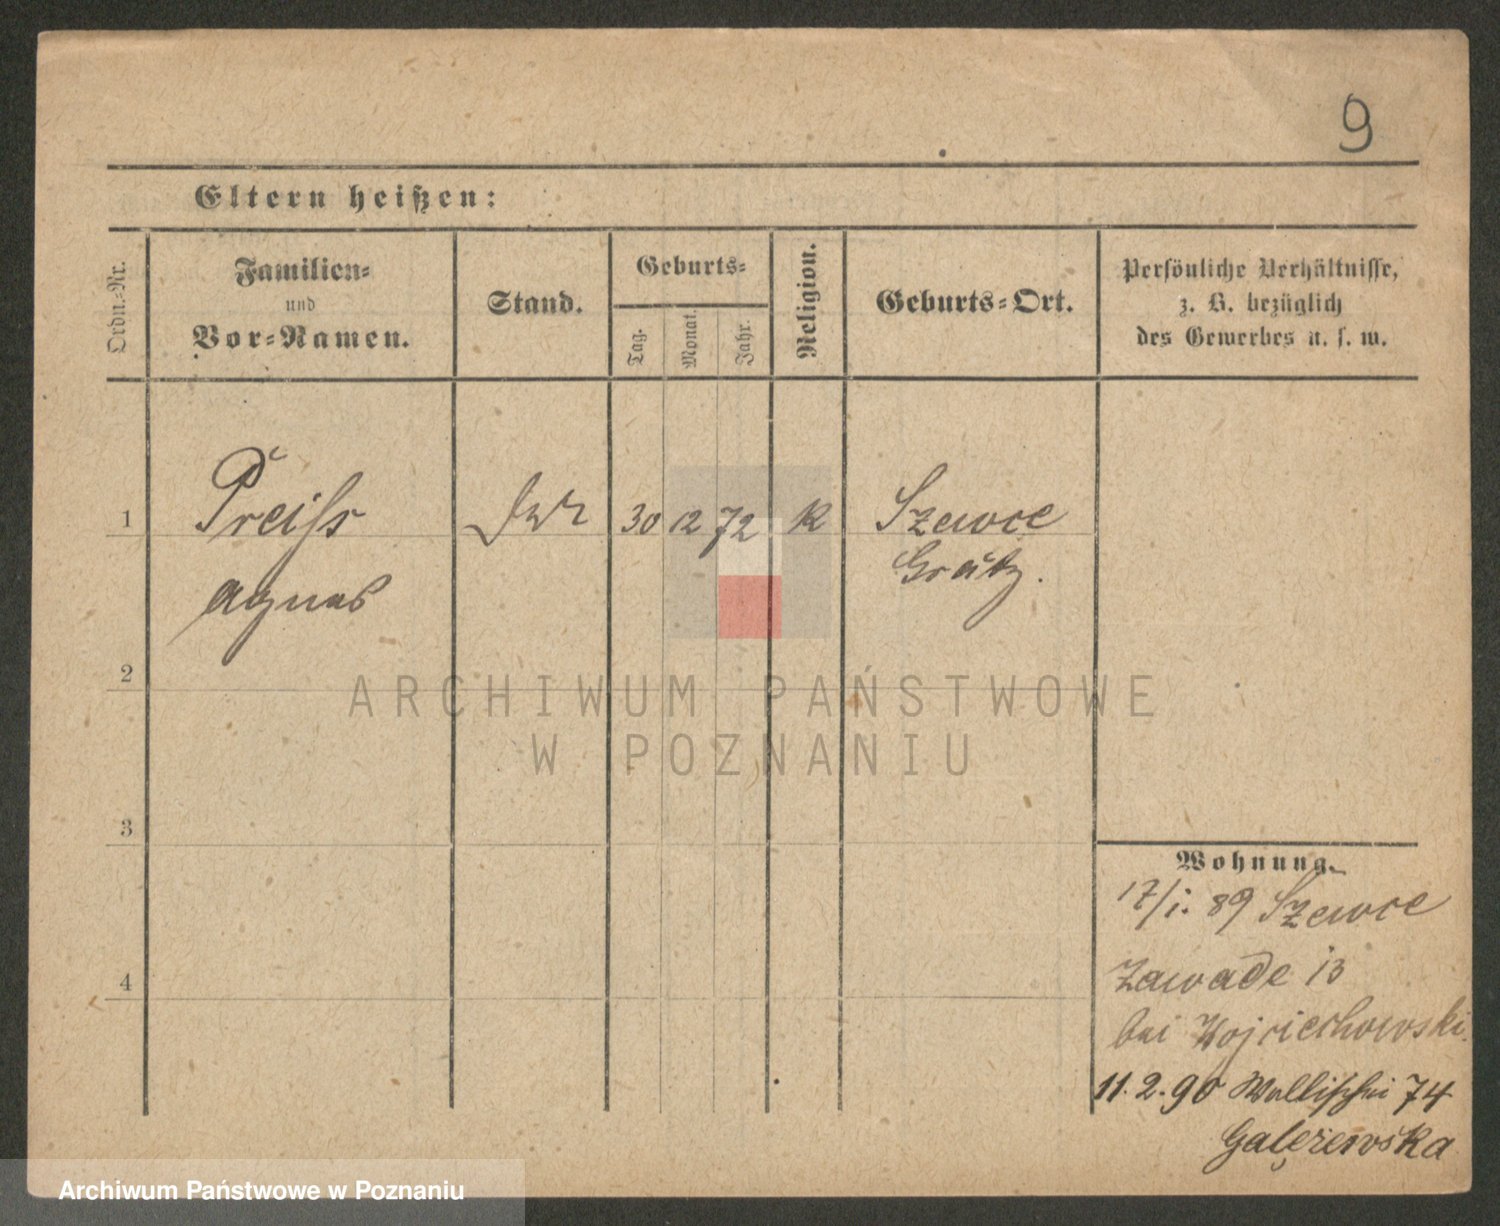 9
Eltern heißen:
Ordn.-Nr.
Familien-
und
Vor-Namen.
Stand.
Geburts-
Tag.
Monat.
Jahr.
Religion.
Geburts-Ort.
Persönliche Verhältnisse,
z. B. bezüglich
des Gewerbes u. s. w.
1 Preiss 30 12 72 K Szewce
Grätz.
Agnes
2
ARCHIWUM PAŃSTWOWE
W POZNANIU
3
Wohnung.
17/1. 89 Szewce
4
Zawade 13
bei Wojciechowski.
11.2.90 Wallischei 74
Galęzewska
Archiwum Państwowe w Poznaniu